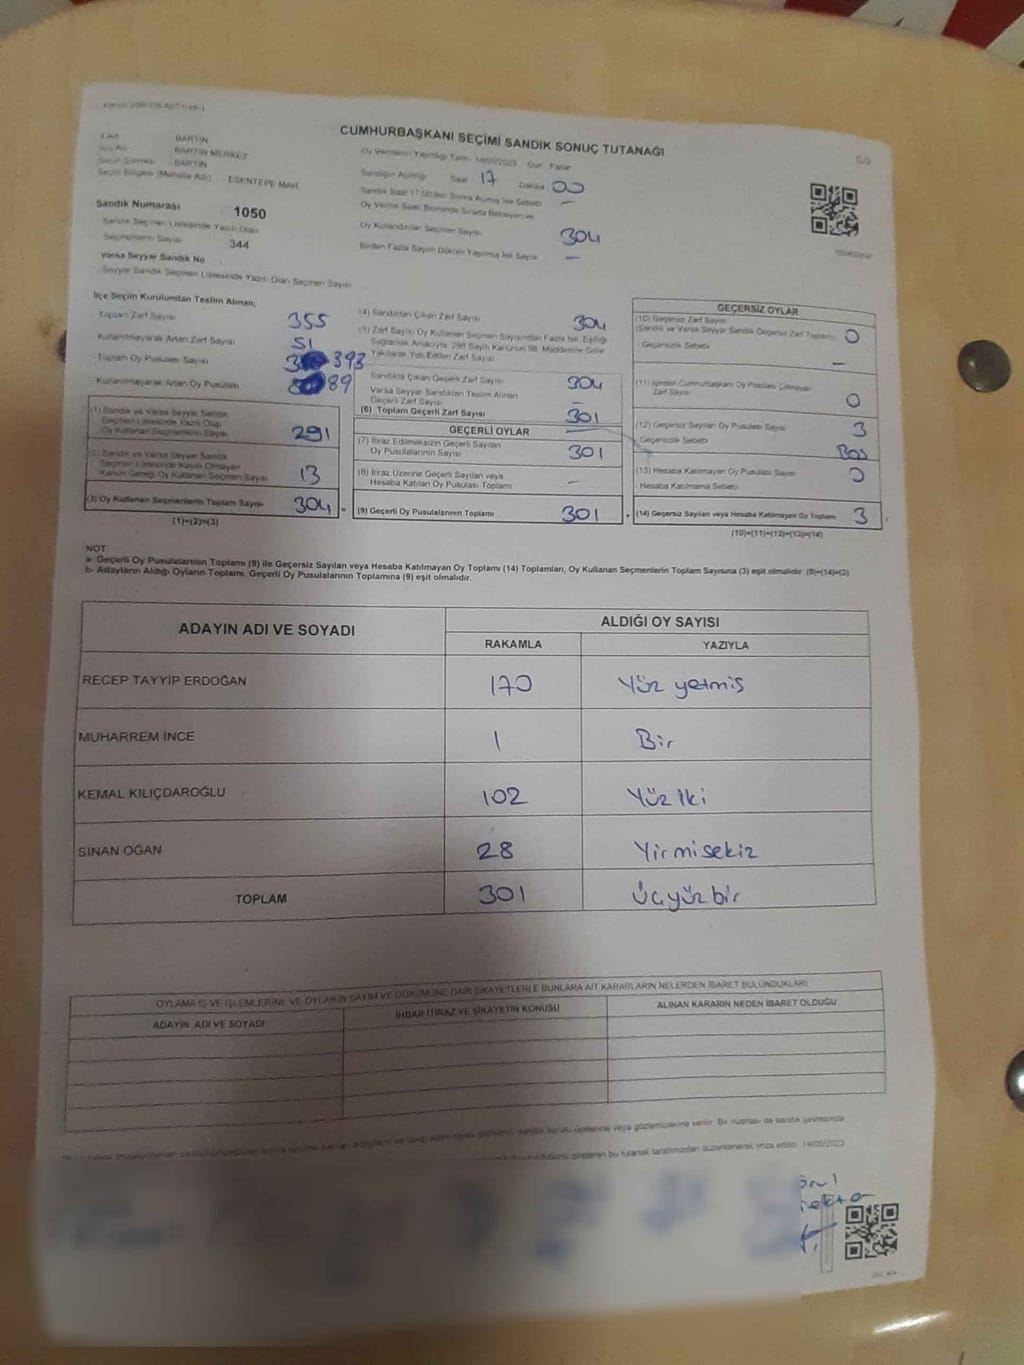 CUMHURBAŞKANI SEÇİMİ SANDIK SONUÇ TUTANAĞI
BARTIN
BARTIN MERKEZ
BARTIN
Seçim Bölgesi (Mahalle Adı) ESENTEPE MAH.
Oy Vermenin Yapıldığı Tarih 14/05/2023 Gün Pazar
Sandığın Açıldığı Saat 17 Dakika 00
Sandık Saat 17:00'den Sonra Açılmış İse Sebebi –
Oy Verme Saati Bitiminde Sırada Bekleyen ve
Oy Kullandırılan Seçmen Sayısı 304
Birden Fazla Sayım Döküm Yapılmış İse Sayısı –
Sandık Numarası 1050
Sandık Seçmen Listesinde Yazılı Olan
Seçmenlerin Sayısı 344
Varsa Seyyar Sandık No
Seyyar Sandık Seçmen Listesinde Yazılı Olan Seçmen Sayısı
İlçe Seçim Kurulundan Teslim Alınan;
Toplam Zarf Sayısı 355
Kullanılmayarak Artan Zarf Sayısı 51
Toplam Oy Pusulası Sayısı 393
Kullanılmayarak Artan Oy Pusulası 89
(1) Sandık ve Varsa Seyyar Sandık
Seçmen Listesinde Yazılı Olup
Oy Kullanan Seçmenlerin Sayısı 291
(2) Sandık ve Varsa Seyyar Sandık
Seçmen Listesinde Kayıtlı Olmayan
Kanun Gereği Oy Kullanan Seçmen Sayısı 13
(3) Oy Kullanan Seçmenlerin Toplam Sayısı 304
(1)+(2)=(3)
(4) Sandıktan Çıkan Zarf Sayısı 304
(5) Zarf Sayısı Oy Kullanan Seçmen Sayısından Fazla İse, Eşitliği
Sağlamak Amacıyla, 298 Sayılı Kanunun 98. Maddesine Göre
Yakılarak Yok Edilen Zarf Sayısı –
Sandıkta Çıkan Geçerli Zarf Sayısı 304
Varsa Seyyar Sandıktan Teslim Alınan
Geçerli Zarf Sayısı –
(6) Toplam Geçerli Zarf Sayısı 301
GEÇERLİ OYLAR
(7) İtiraz Edilmeksizin Geçerli Sayılan
Oy Pusulalarının Sayısı 301
(8) İtiraz Üzerine Geçerli Sayılan veya
Hesaba Katılan Oy Pusulası Toplamı –
(9) Geçerli Oy Pusulalarının Toplamı 301
GEÇERSİZ OYLAR
(10) Geçersiz Zarf Sayısı
(Sandık ve Varsa Seyyar Sandık Geçersiz Zarf Toplamı) 0
Geçersizlik Sebebi –
(11) İçinden Cumhurbaşkanı Oy Pusulası Çıkmayan
Zarf Sayısı 0
(12) Geçersiz Sayılan Oy Pusulası Sayısı 3
Geçersizlik Sebebi Boş
(13) Hesaba Katılmayan Oy Pusulası Sayısı 0
Hesaba Katılmama Sebebi
(14) Geçersiz Sayılan veya Hesaba Katılmayan Oy Toplamı 3
(10)+(11)+(12)+(13)=(14)
NOT:
a- Geçerli Oy Pusulalarının Toplamı (9) ile Geçersiz Sayılan veya Hesaba Katılmayan Oy Toplamı (14) Toplamları, Oy Kullanan Seçmenlerin Toplam Sayısına (3) eşit olmalıdır. (9)+(14)=(3)
b- Adayların Aldığı Oyların Toplamı, Geçerli Oy Pusulalarının Toplamına (9) eşit olmalıdır.
ADAYIN ADI VE SOYADI
ALDIĞI OY SAYISI
RAKAMLA YAZIYLA
RECEP TAYYİP ERDOĞAN 170 Yüz yetmiş
MUHARREM İNCE 1 Bir
KEMAL KILIÇDAROĞLU 102 Yüz İki
SİNAN OĞAN 28 Yirmisekiz
TOPLAM 301 Üçyüz bir
OYLAMA İŞ VE İŞLEMLERİNE VE OYLARIN SAYIM VE DÖKÜMÜNE DAİR ŞİKAYETLERLE BUNLARA AİT KARARLARIN NELERDEN İBARET BULUNDUKLARI
ADAYIN ADI VE SOYADI İHBAR İTİRAZ VE ŞİKAYETİN KONUSU ALINAN KARARIN NEDEN İBARET OLDUĞU